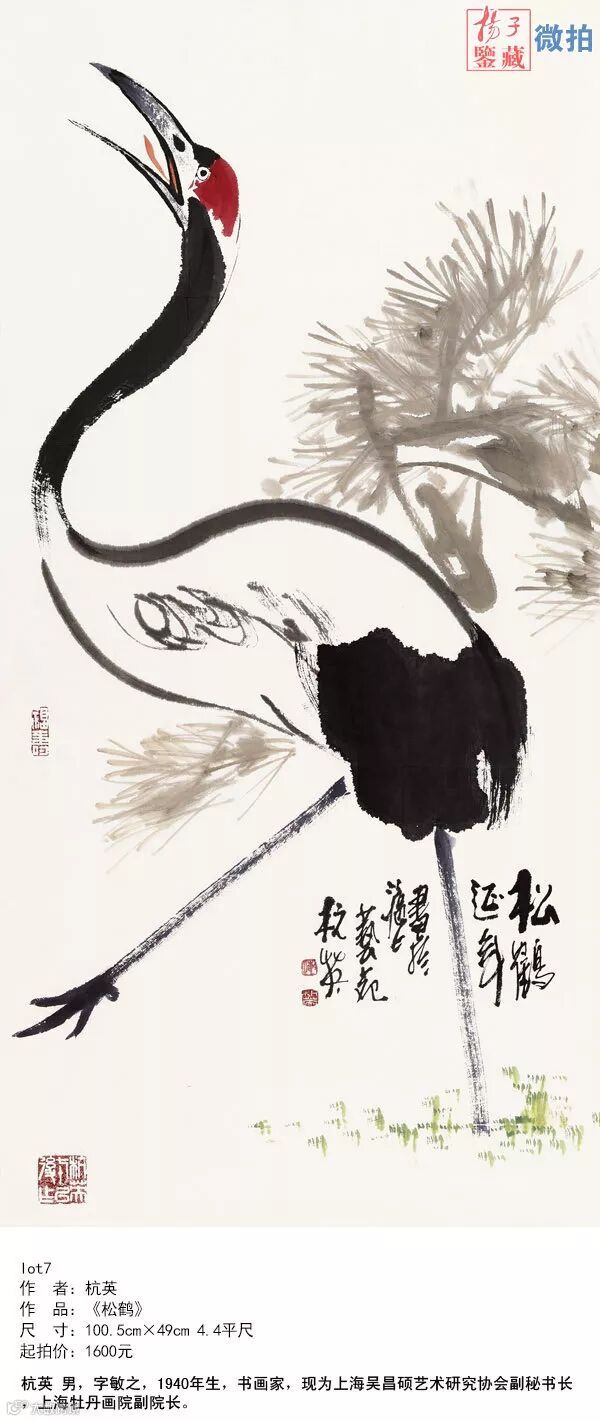 揚子
鑒藏
微拍
松鶴
延年
藝苑
杭英
lot7
作 者: 杭英
作 品: 《松鹤》
尺 寸: 100.5cm×49cm 4.4平尺
起拍价: 1600元
杭英 男, 字敏之, 1940年生, 书画家, 现为上海吴昌硕艺术研究协会副秘书长
, 上海牡丹画院副院长。